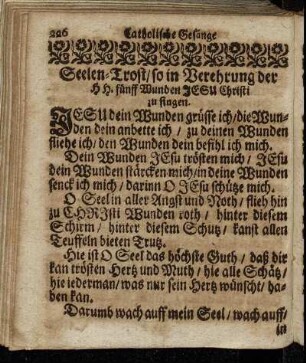 226 Catholische Gesänge
Seelen-Trost/ so in Verehrung der
H H. fünff Wunden JESU Christi
zu singen.
JESU dein Wunden grüsse ich/ die Wun-
den dein anbette ich / zu deinen Wunden
fliehe ich/ den Wunden dein befihl ich mich.
Dein Wunden JEsu trösten mich / JEsu
dein Wunden stärcken mich/ in deine Wunden
senck ich mich / darinn O JEsu schütze mich.
O Seel in aller Angst und Noth / flieh hin
zu CHRJsti Wunden roth / hinter diesem
Schirm / hinter diesem Schutz / kanst allen
Teuffeln bieten Trutz.
Hie ist O Seel das höchste Guth / daß dir
kan trösten Hertz und Muth / hie alle Schätz/
hie iederman/ was nur sein Hertz wünscht/ ha-
ben kan.
Darumb wach auff mein Seel / wach auff/
in